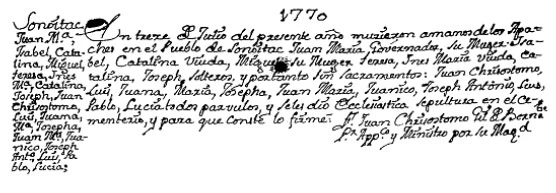 1770
Sonoitac
Juan Mª,
Isabel, Cata-
lina, Miguel,
Teresa, Ines
Mª, Catalina
Joseph, Juan
Chrisostomo,
Luis, Juana,
Maria, Josepha,
Juan Mª, Jua-
nico, Joseph
Antº, Luis, Pa-
blo, Lucia;
En trece de Junio del presente año murieron a manos de los Apa-
ches en el Pueblo de Sonoitac Juan Maria, Governador, su Muger Isa-
bel, Catalina Viuda, Miguel su Muger Teresa, Ines Maria Viuda, Ca-
talina, Joseph, solteros, y por tanto sin Sacramentos: Juan Chrisostomo,
Luis, Juana, Maria, Josepha, Juan Maria, Juanico, Joseph Antonio, Luis,
Pablo, Lucia todos parvulos, y se les dió Ecclesiastica Sepultura en el Ce-
menterio, y para que conste lo firmé. Fr. Juan Chrisostomo Gil de Berna
Pr. Appco y Ministro por su Magd